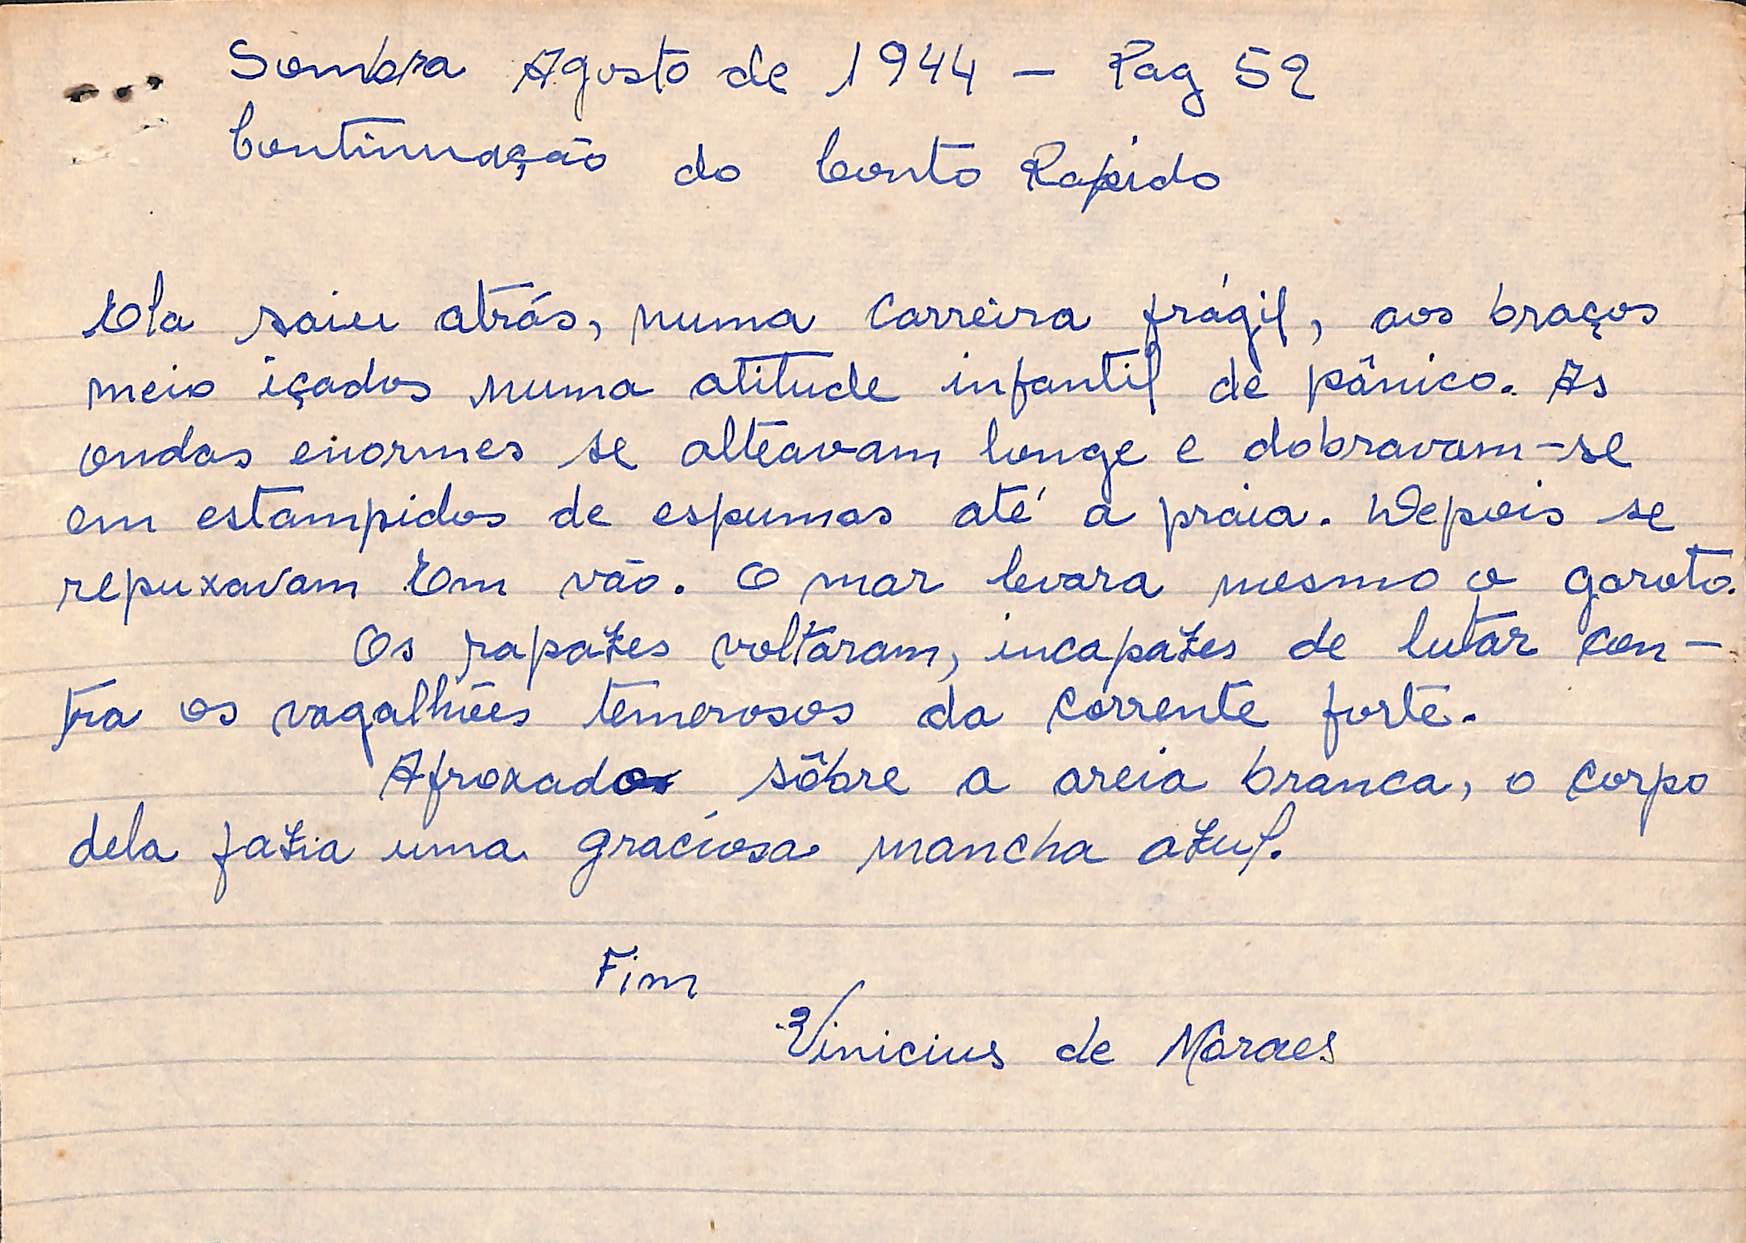 Sombra Agosto de 1944 - Pag 52
Continuação do Conto Rapido
Ela saiu atrás, numa carreira frágil, aos braços
meio içados numa atitude infantil de pânico. As
ondas enormes se alteavam longe e dobravam-se
em estampidos de espumas até a praia. Depois se
repuxavam Em vão. O mar levara mesmo o garoto.
Os rapazes voltaram, incapazes de lutar con-
tra os vagalhões temerosos da corrente forte.
Afroxado sôbre a areia branca, o corpo
dela fazia uma graciosa mancha azul.
Fim
Vinicius de Moraes